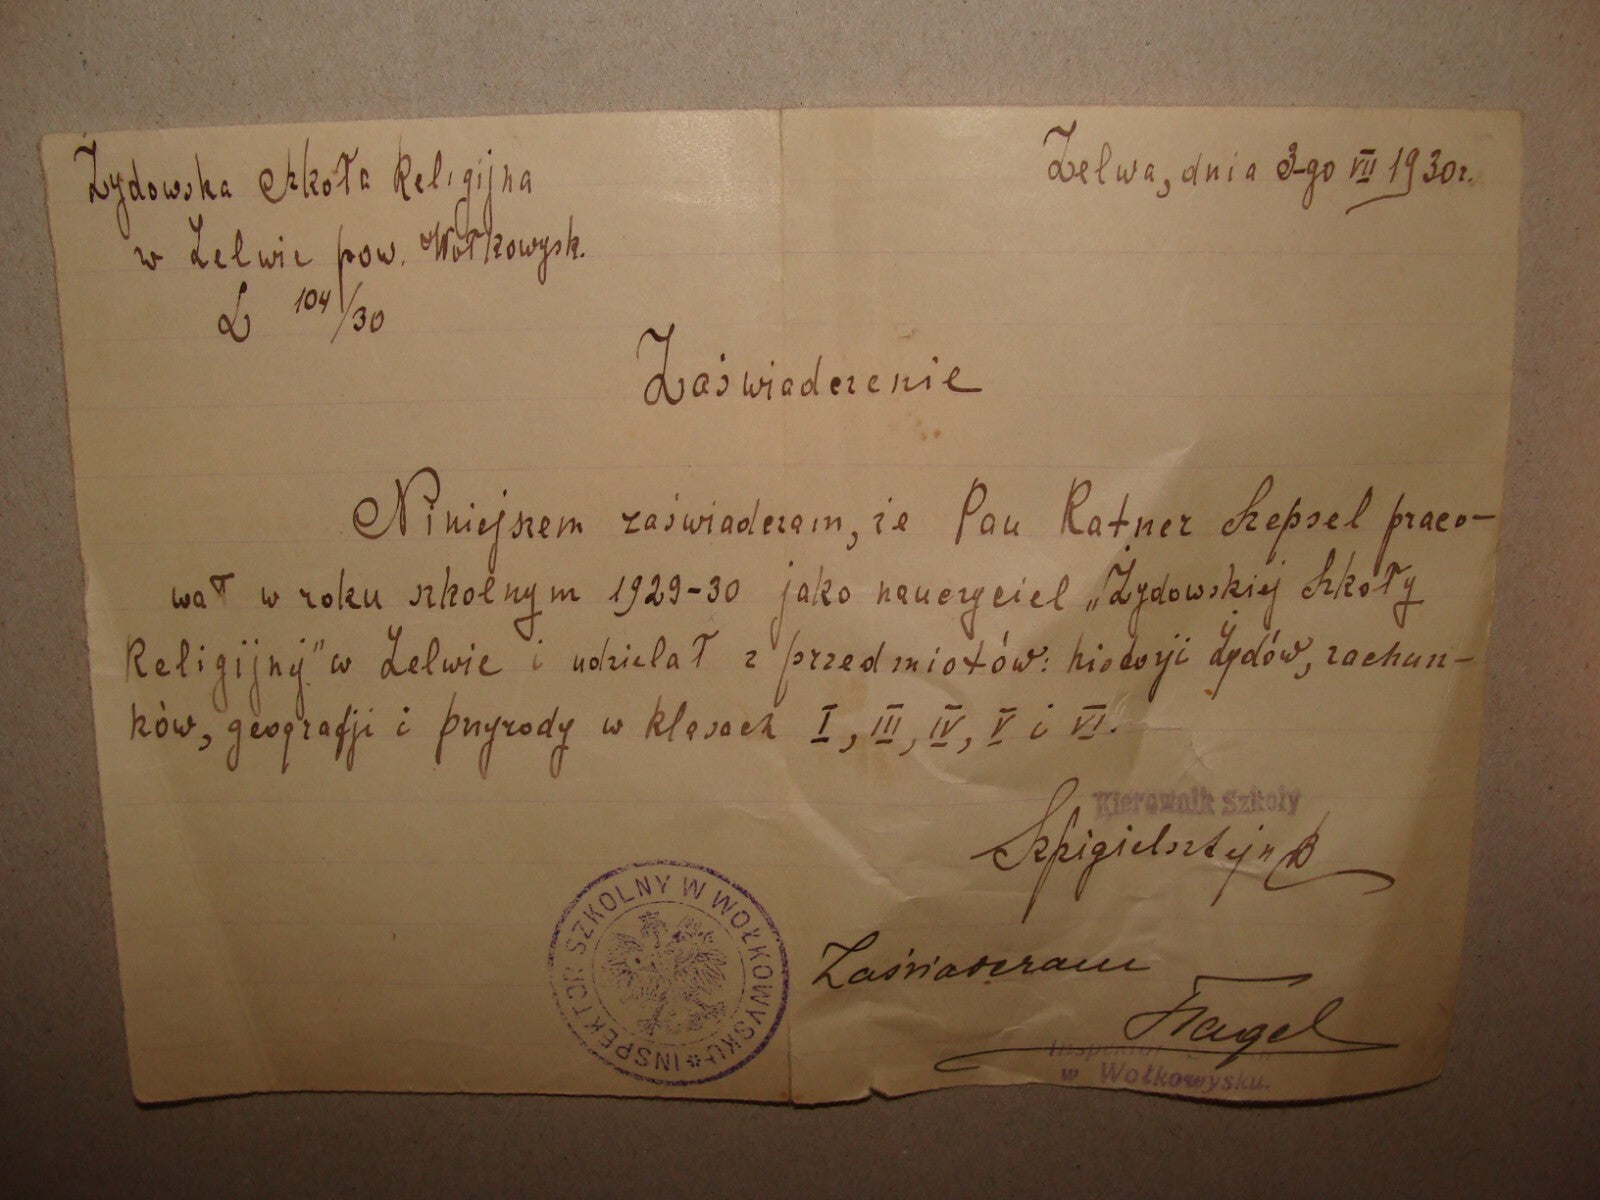 Żydowska Szkoła Religijna
w Zelwie pow. Wołkowysk.
L 104/30
Zelwa, dnia 3-go VII 1930 r.
Zaświadczenie
Niniejszem zaświadczam, że Pan Ratner Szepsel praco-
wał w roku szkolnym 1929-30 jako nauczyciel „Żydowskiej Szkoły
Religijnej" w Zelwie i udzielał z przedmiotów: historji Żydów, rachun-
ków, geografji i przyrody w klasach I, III, IV, V i VI.
Kierownik Szkoły
Szpigielsztejn B
Zaświadczam
Inspektor
w Wołkowysku.
INSPEKTOR SZKOLNY W WOŁKOWYSKU